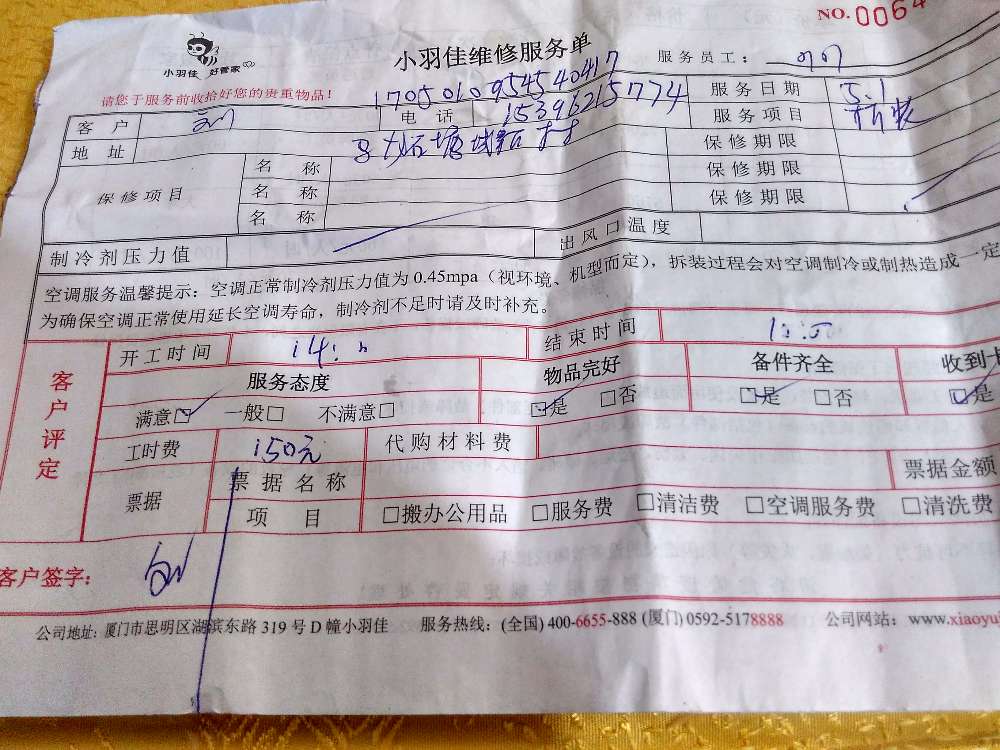 NO.0064
小羽佳 好管家
小羽佳维修服务单
服务员工：
请您于服务前收拾好您的贵重物品！
1705010954540417
服务日期 5.1
客户 电话 15396215774
服务项目 拆装
地址
保修期限
保修项目
名称
保修期限
名称
保修期限
名称
制冷剂压力值 出风口温度
空调服务温馨提示：空调正常制冷剂压力值为 0.45mpa（视环境、机型而定），拆装过程会对空调制冷或制热造成一定
为确保空调正常使用延长空调寿命，制冷剂不足时请及时补充。
客户评定
开工时间 结束时间
服务态度 物品完好 备件齐全 收到卡
满意☑ 一般□ 不满意□ ☑是 □否 ☑是 □否 ☑是
工时费 150元 代购材料费
票据 票据名称 票据金额
项目 □搬办公用品 □服务费 □清洁费 □空调服务费 □清洗费
客户签字：
公司地址：厦门市思明区湖滨东路 319 号 D 幢小羽佳 服务热线：(全国) 400-6655-888 (厦门) 0592-5178888 公司网站：www.xiaoyuj